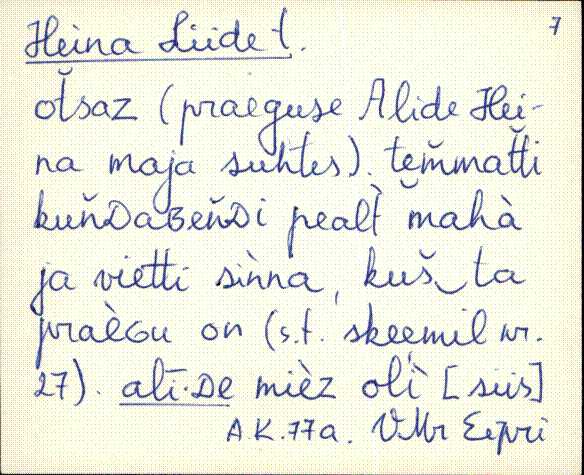 7
Heina Liide t.
ot̆saz (praeguse Alide Hei-
na maja suhtes). tem̆mat̆ti
kuňᴅaʙeňᴅi pealt̀ m̆ahà
ja vietti sìnna, kuš‿ta
praèɢu on (s.t. skeemil nr.
27). alī·ᴅe mièz olì [siis]
A.K. 77a. VMr Eipri